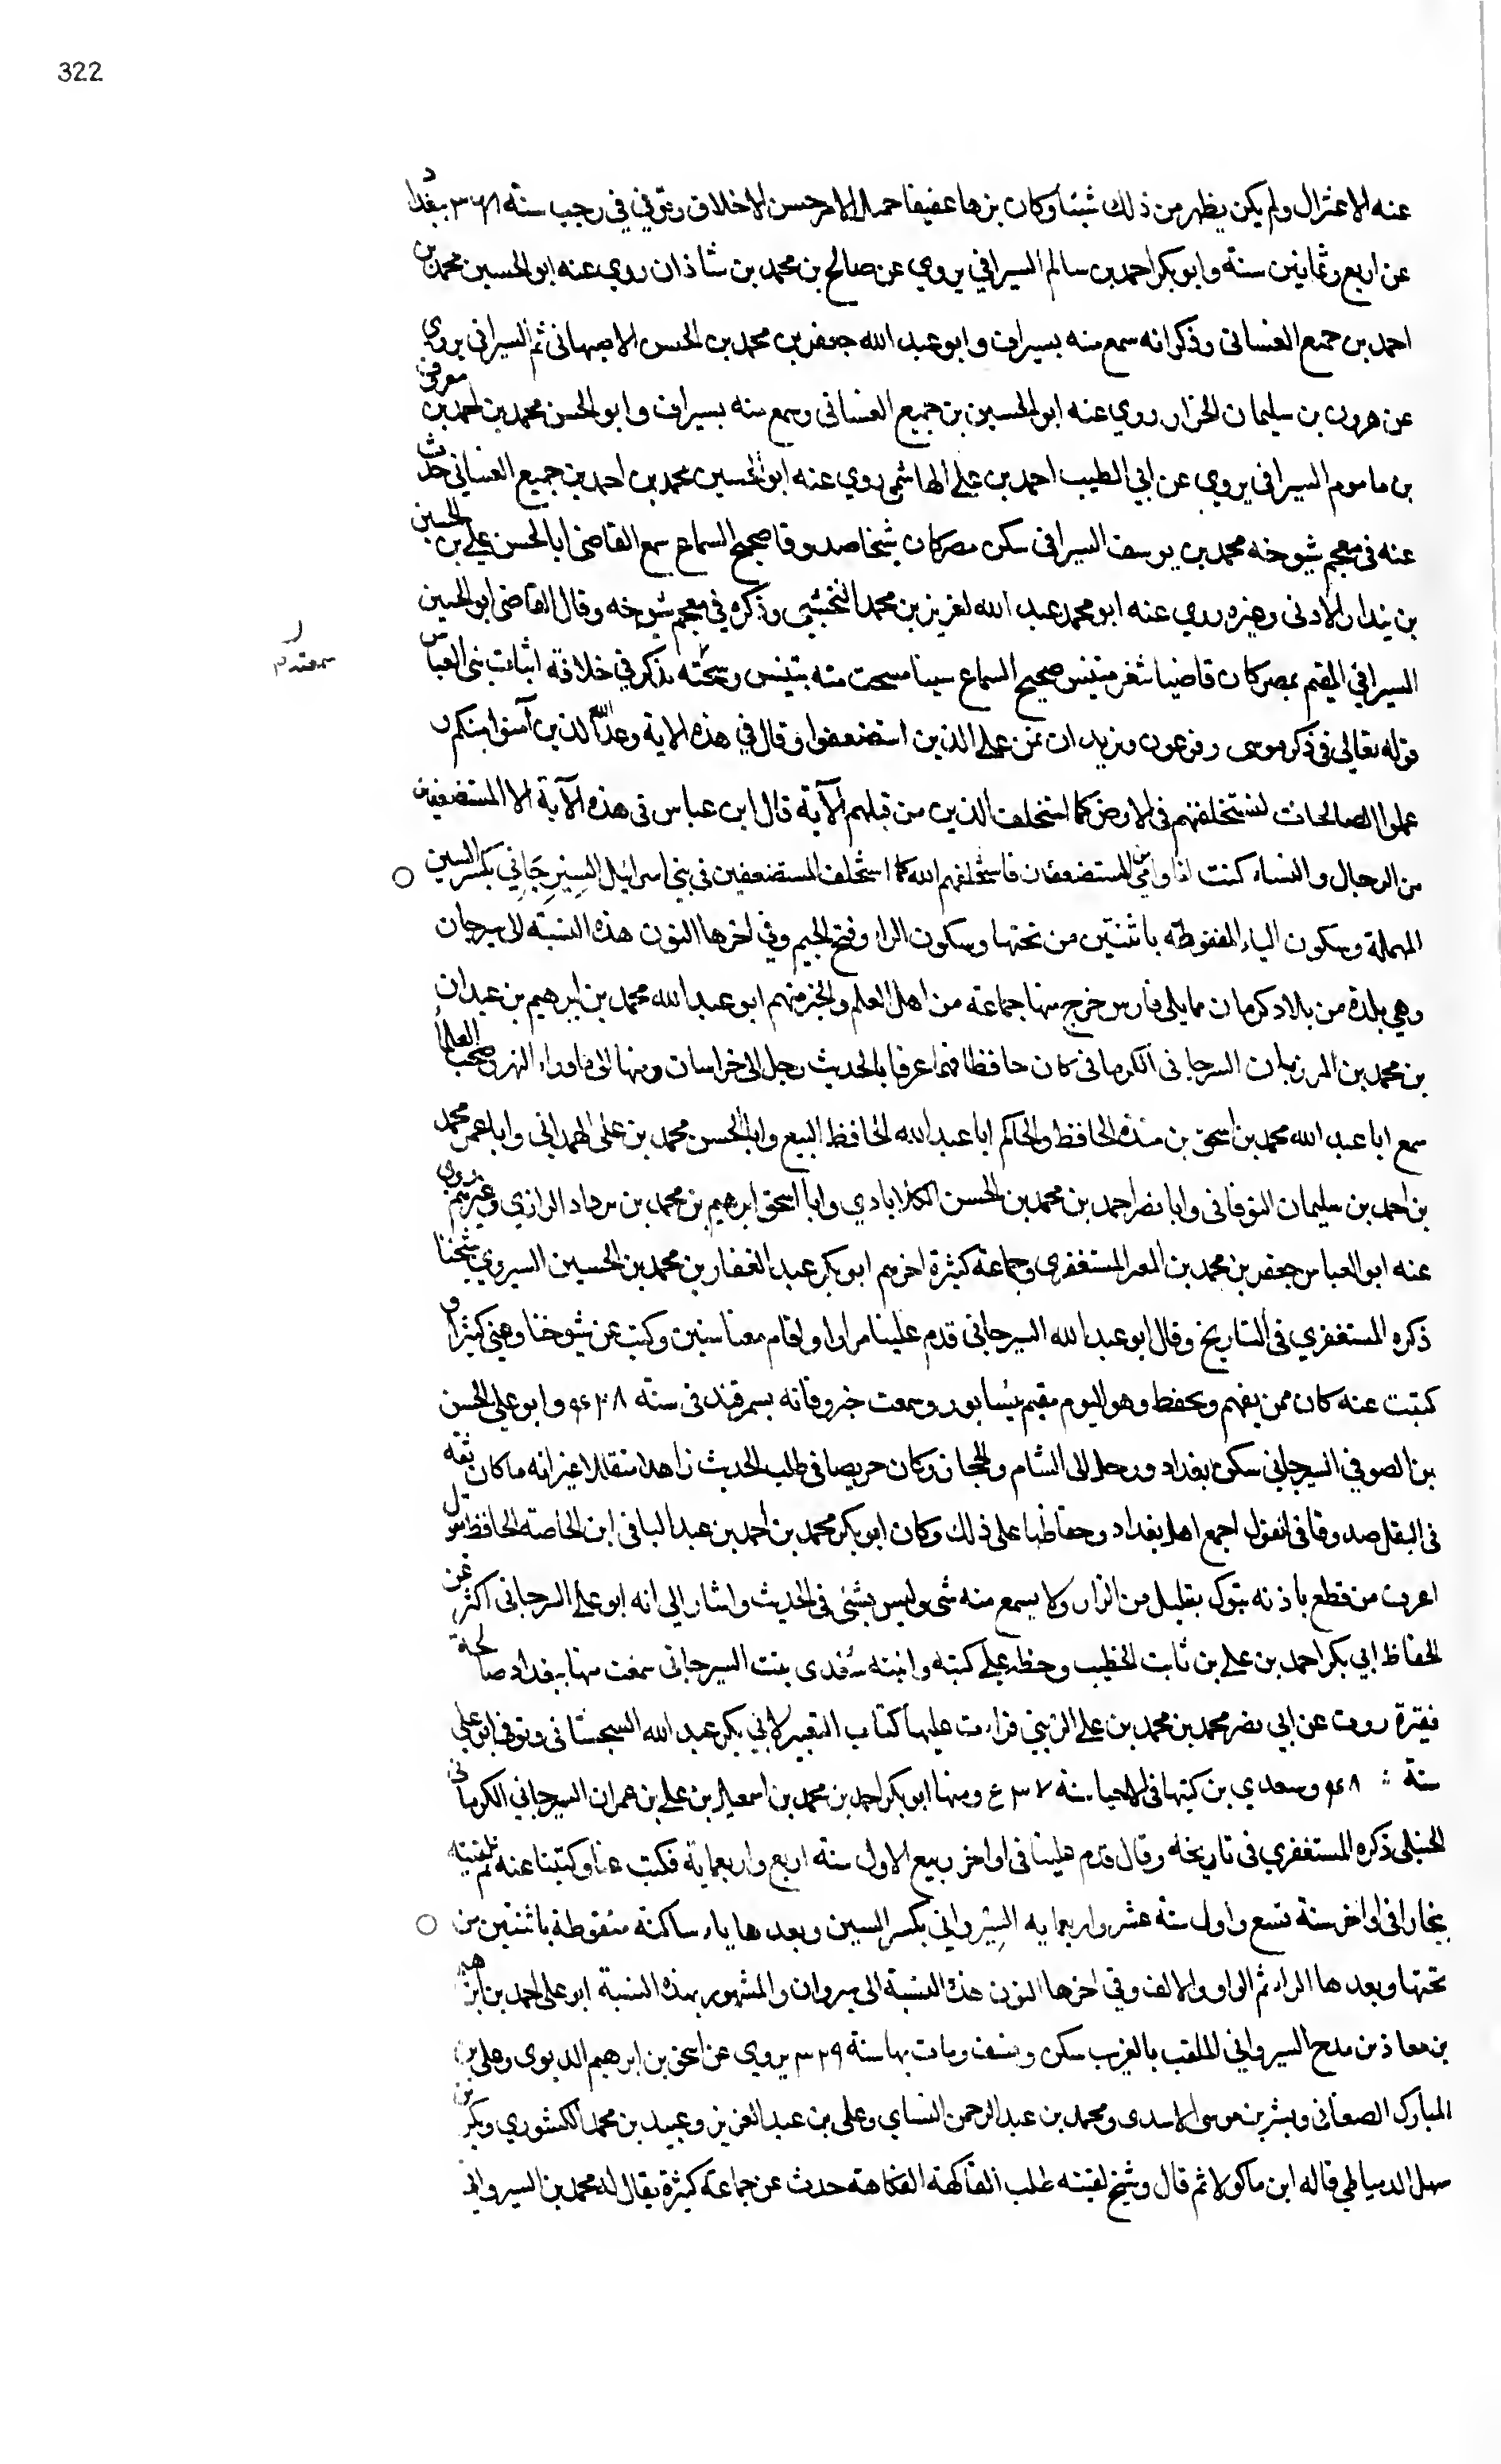 322
عنه الاعتزال ولم يكن يظهر من ذلك شيئا وكان نزها عفيفا جميل الامر حسن الاخلاق وتوفي في رجب سنة ٣٦٨ ببغداد
عن اربع وثمانين سنة وابو بكر احمد بن سالم السيرافي يروي عن صالح بن محمد بن شاذان روي عنه ابو الحسين محمد بن
احمد بن جميع الغساني وذكر انه سمع منه بسيراف وابو عبد الله جعفر بن محمد بن الحسن الاصبهاني ثم السيرافي يروي
عن هرون بن سليمان الخزار روي عنه ابو الحسين بن جميع الغساني وسمع منه بسيراف وابو الحسن محمد بن احمد بن
بن ماموم السيرافي يروي عن ابي الطيب احمد بن علي الهاشمي روي عنه ابو الحسين محمد بن احمد بن جميع الغساني حدث
عنه في معجم شيوخه محمد بن يوسف السيرافي سكن مصر كان شيخا صدوقا صحيح السماع سمع القاضي ابا الحسن علي بن الحسين
بن بندار الاذني وغيره روي عنه ابو محمد عبد الله لعزيز بن محمد النخشبي وذكره في معجم شيوخه وقال القاضي ابو الحسين
السيرافي المقيم بمصر كان قاضيا صحيح السماع سمعت منه بتنيس يذكر في خلافة اثبات بني العباس
قوله تعالى في ذكر موسى وفرعون ونريد ان نمن على الذين استضعفوا وقال في هذه الاية وعد الله الذين آمنوا منكم و
عملوا الصالحات لنستخلفنهم في الارض كما استخلف الذين من قبلهم الآية قال ابن عباس في هذه الآية الا المستضعفين
من الرجال والنساء كنت انا وامي من المستضعفين فاستخلفهم الله كما استخلف المستضعفين في بني اسرائيل السيرجاني بكسر السين
المهملة وسكون الياء المنقوطة باثنتين من تحتها وسكون الراء وفتح الجيم وفي اخرها النون هذه النسبة الى سيرجان
وهي بلدة من بلاد كرمان مما يلي فارس خرج منها جماعة من اهل العلم والخير منهم ابو عبد الله محمد بن ابرهيم بن عبدان
بن محمد بن المرزبان السرجاني الكرماني كان حافظا عرفا بالحديث رحل الى خراسان ومنها الى ماوراء النهر وصحب العلما
سمع ابا عبد الله محمد بن اسحق بن منده الحافظ والحاكم ابا عبد الله الحافظ البيع وابا الحسن محمد بن علي الهمداني وابا عمر محمد
بن احمد بن سليمان النوقاني وابا نصر احمد بن محمد بن الحسن الكلاباذي وابا اسحق ابرهيم بن محمد بن الرازي وغيرهم روى
عنه ابو العباس جعفر بن محمد بن المعتز المستغفري وجماعة كثيرة اخرهم ابو بكر عبد الغفار بن محمد بن الحسين السيروي شيخنا
ذكره المستغفري في التاريخ وقال ابو عبد الله السيرجاني قدم علينا مرارا واقام معنا سنين وكتب عن شيوخنا وعني كثيرا و
كتبت عنه كان ممن يفهم ويحفظ وهو اليوم مقيم بنيسابور وسمعت خبر وفاته بسمرقند في سنة وابو علي الحسن
بن الصوفي السيرجاني سكن بغداد ورحل الى الشام والحجاز وكان حريصا في طلب الحديث زاهدا متقللا غير انه ما كان ثقه
في النقل صدوقا في القول اجمع اهل بغداد وحفاظها على ذلك وكان ابو بكر محمد بن احمد بن عبد الباقي ابن الخاصة الحافظ يقول
اعرف من قطع باذنه بقليل من الزار ولا يسمع منه شي وليس بشئي في الحديث واشار الي انه ابو علي السرجاني اكثر عن
الحفاظ ابي بكر احمد بن علي بن ثابت الخطيب وخطه علي كتبه وابنته بنت السيرجاني سمعت منها ببغداد صالحة
فقيرة روت عن ابي نصر محمد بن محمد بن علي الزينبي قراءت عليها كتاب التعبير لابي بكر عبد الله السجستاني وتوفي ابو علي
سنة ومنها ابو بكر احمد بن محمد بن اسمعيل بن علي بن عمران السيرجاني الكرماني
الحنبلي ذكره المستغفري في تاريخه وقال قدم علينا في اواخر ربيع الاول سنة اربع واربعماية فكتب عنا وكتبنا عنه ثم لقيته
ببخارا في اواخر سنة تسع واول سنة عشر واربعمايه السيرواني بكسر السين وبعدها ياء ساكنة منقوطة باثنتين من
تحتها وبعدها الراء ثم الواو والالف وفي اخرها النون هذه النسبة الى سيروان والمشهور بهذه النسبة ابو علي احمد بن ابرهيم
بن معاذ السيرواني الملقب بالغريب سكن ونسف ومات بها سنة ٣٢٩ يروي عن اسحق بن ابرهيم الدبري وعلي بن
المبارك الصنعاني وبشر بن موسى الاسدي ومحمد بن عبد الرحمن النساي وعلي بن عبد العزيز وعبيد بن محمد الكشوري وبكر بن
سهل الدمياطي قاله ابن ماكولا ثم قال وشيخ لقيته طلب الفاكهة الفكاهة حدث عن جماعة كثيرة يقال له محمد بن السيرواني